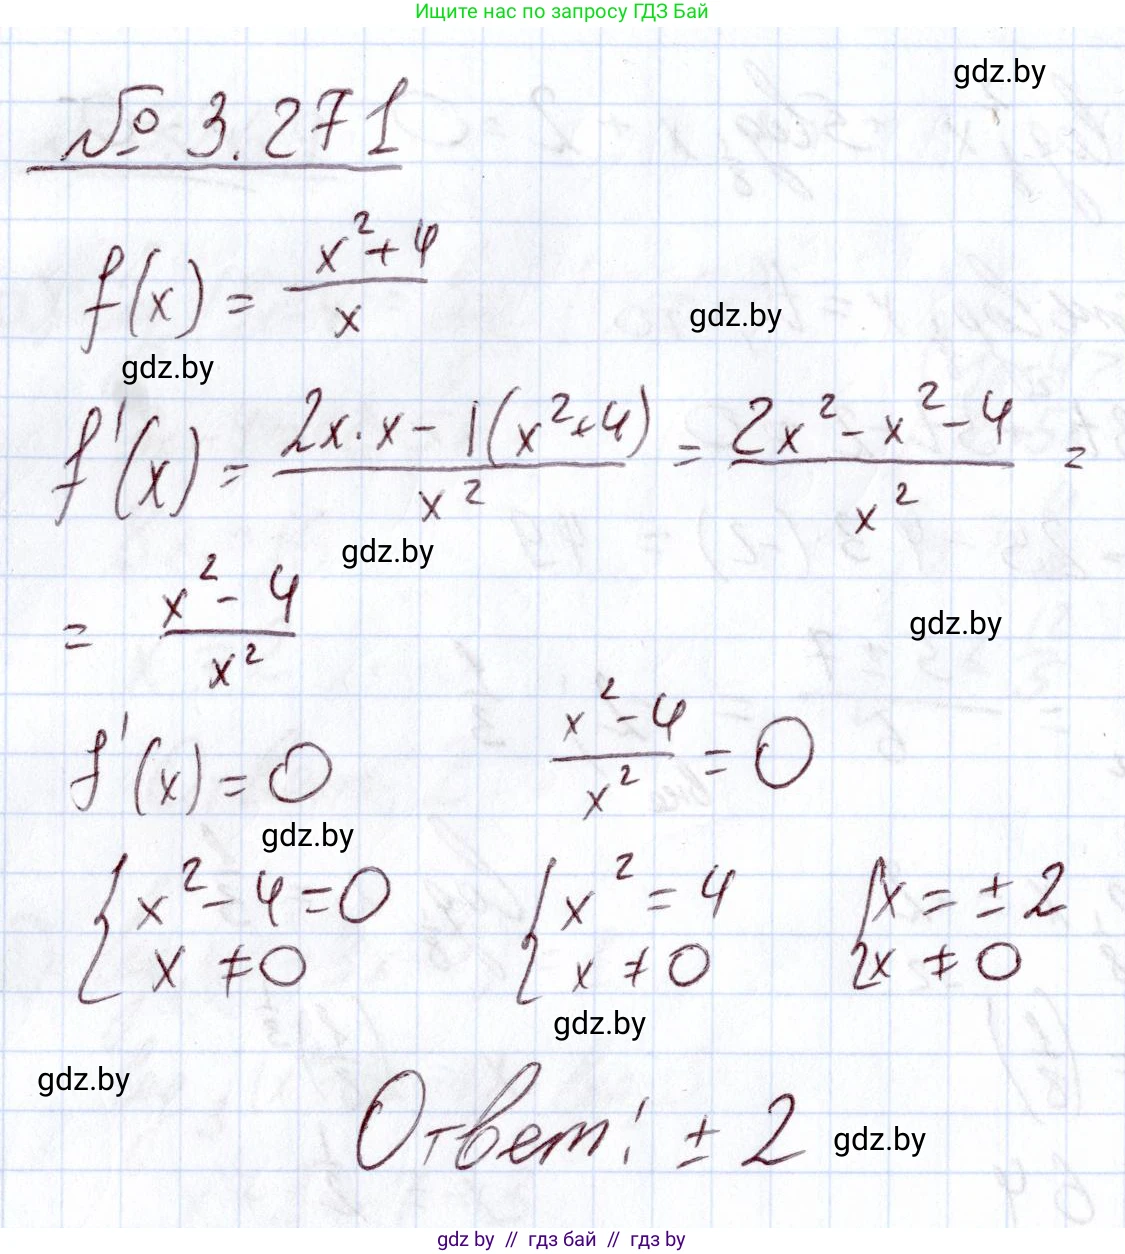 Ищите нас по запросу ГДЗ Бай
gdz.by
№ 3.271
f(x) = (x² + 4)/x
gdz.by
gdz.by
f'(x) = (2x·x - 1(x²+4))/x² = (2x² - x² - 4)/x² =
gdz.by
= (x² - 4)/x²
gdz.by
f'(x) = 0 (x² - 4)/x² = 0
gdz.by
{ x² - 4 = 0 { x² = 4 { x = ± 2
x ≠ 0 x ≠ 0 x ≠ 0
gdz.by
gdz.by
Ответ: ± 2
gdz.by
gdz by // гдз бай // гдз by